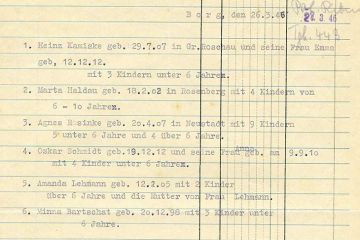 Borg, den 26.3.46
27.3.46
1. Heinz Kamiske geb. 29.7.07 in Gr.Roschau und seine Frau Emma
geb, 12.12.12.
mit 3 Kindern unter 6 Jahren.
2. Marta Haldau geb. 18.2.02 in Rosenberg mit 4 Kindern von
6 - 10 Jahren.
3. Agnes Rosinke geb. 20.4.07 in Neustadt mit 9 Kindern
5 unter 6 Jahre und 4 über 6 Jahre.
4. Oskar Schmidt geb. 19.12.12 und seine Frau Anna geb. am 9.9.10
mit 4 Kinder unter 6 Jahren.
5. Amanda Lehmann geb. 12.2.05 mit 2 Kinder
über 6 Jahre und die Mutter von Frau Lehmann.
6. Minna Bartschat geb. 20.12.98 mit 3 Kinder unter
6 Jahre.